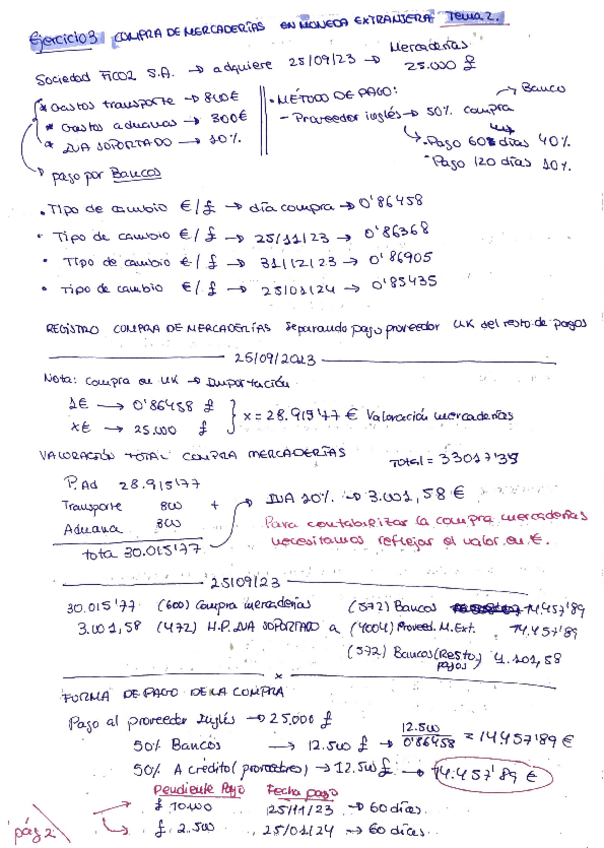 Ejercicio 3 COMPRA DE MERCADERÍAS EN MONEDA EXTRANJERA Tema 2.
Sociedad FICO2 S.A. → adquiere 25/09/23 → Mercaderías 25.000 £
* Gastos transporte → 800€
* Gastos aduanas → 300€
* IVA SOPORTADO → 10%.
pago por Bancos
• MÉTODO DE PAGO:
- Proveedor inglés → 50% compra → Banco
• Pago 60 días 40%
• Pago 120 días 10%.
• Tipo de cambio €/£ → día compra → 0'86458
• Tipo de cambio €/£ → 25/11/23 → 0'86368
• Tipo de cambio €/£ → 31/12/23 → 0'86905
• Tipo de cambio €/£ → 25/01/24 → 0'85435
REGISTRO COMPRA DE MERCADERÍAS separando pago proveedor UK del resto de pagos
25/09/2023
Nota: compra en UK → Importación
1€ → 0'86458 £
x€ → 25.000 £
x = 28.915'77 € Valoración mercaderías
VALORACIÓN TOTAL COMPRA MERCADERÍAS
TOTAL = 33017'35
P. Ad 28.915'77
Transporte 800 +
Aduana 300
tota 30.015'77
IVA 10% → 3.001,58 €
Para contabilizar la compra mercaderías
necesitamos reflejar el valor en €.
25/09/23
30.015'77 (600) Compra mercaderías (572) Bancos 14.457'89
3.001,58 (472) H.P. IVA SOPORTADO a (4004) Proveed. M. Ext. 14.457'89
(572) Bancos (Resto pagos) 4.101,58
x
FORMA DE PAGO DE LA COMPRA
Pago al proveedor Inglés → 25.000 £
50% Bancos → 12.500 £ → 12.500 / 0'86458 = 14.457'89 €
50% A crédito (proveedores) → 12.500 £ → 14.457'89 €
Pendiente Pago Fecha pago
£ 10.000 25/11/23 → 60 días.
£. 2.500 25/01/24 → 60 días.
pág 2